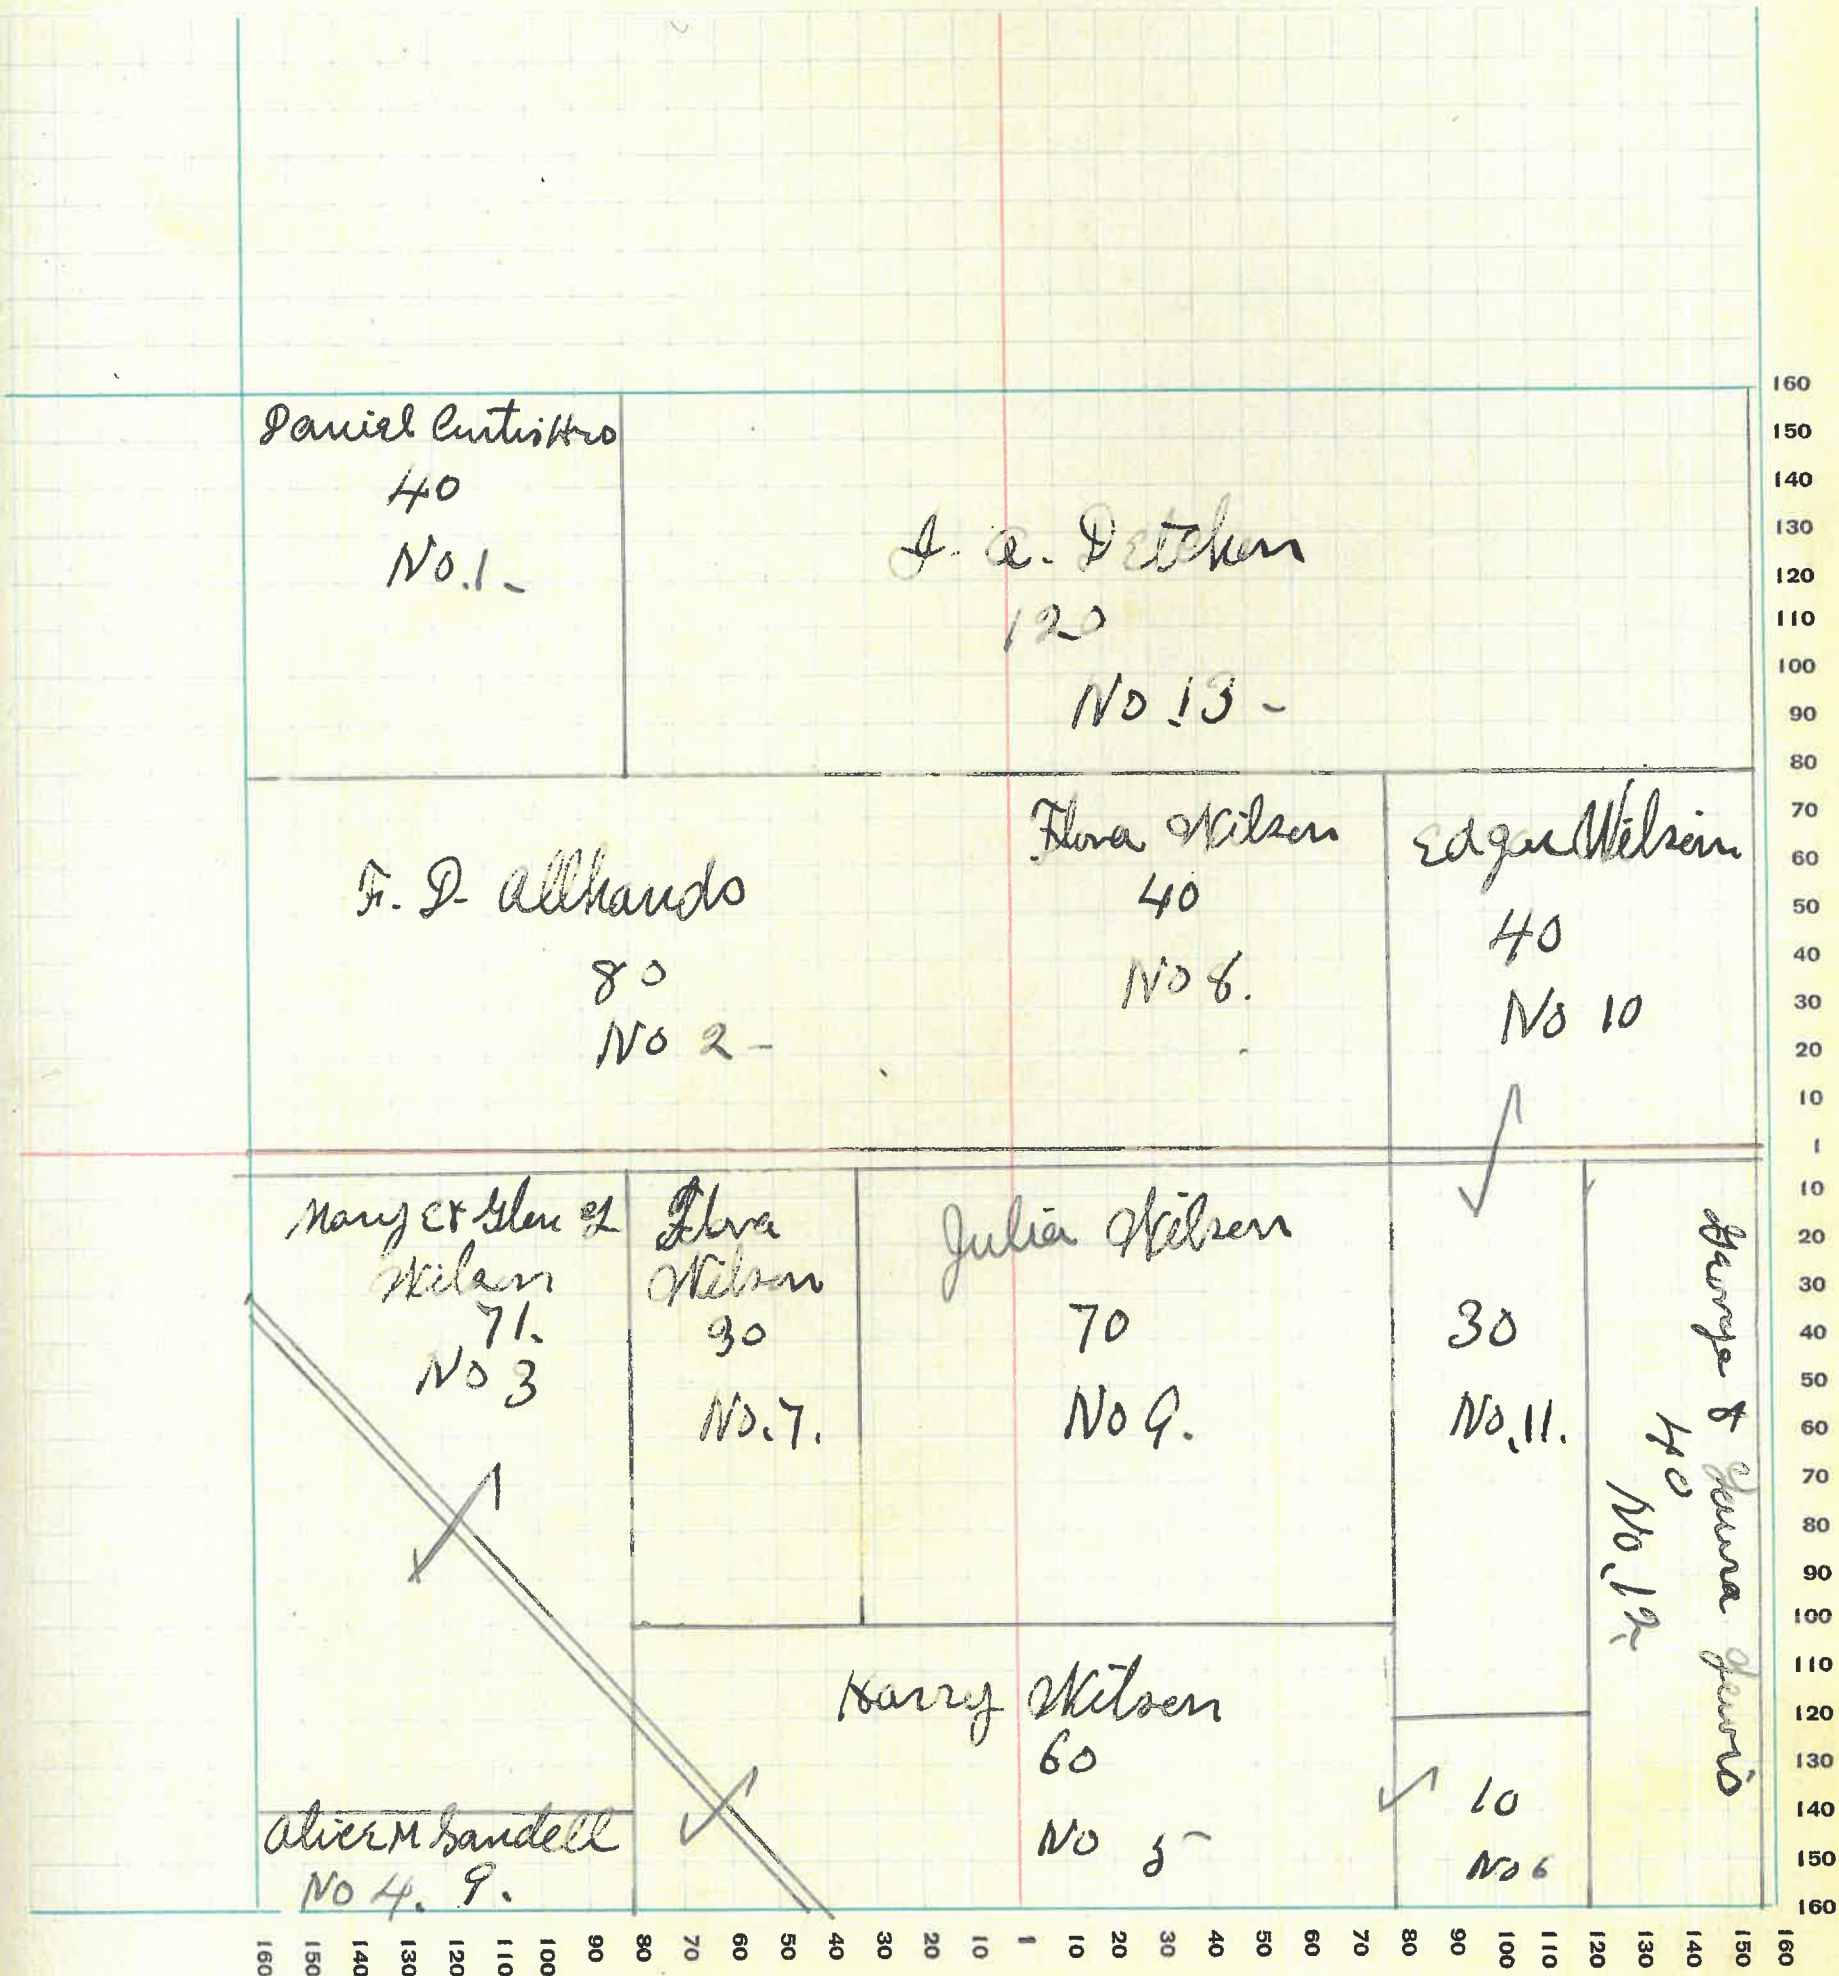 Daniel Curtis Hro
40
No. 1 -
J. A. Detchen
120
No 13 -
F. D. Allhands
80
No 2 -
Flora Wilson
40
No 8.
Edgar Wilson
40
No 10
Mary C & Glen L
Wilson
71.
No 3
Flora
Wilson
30
No. 7.
Julia Wilson
70
No 9.
30
No. 11.
George & Laura Jewris
40
No. 12
Harry Wilson
60
No 5
10
No 6
Alice M Sandell
No 4. 9.
160
150
140
130
120
110
100
90
80
70
60
50
40
30
20
10
1
10
20
30
40
50
60
70
80
90
100
110
120
130
140
150
160
160 150 140 130 120 110 100 90 80 70 60 50 40 30 20 10 1 10 20 30 40 50 60 70 80 90 100 110 120 130 140 150 160